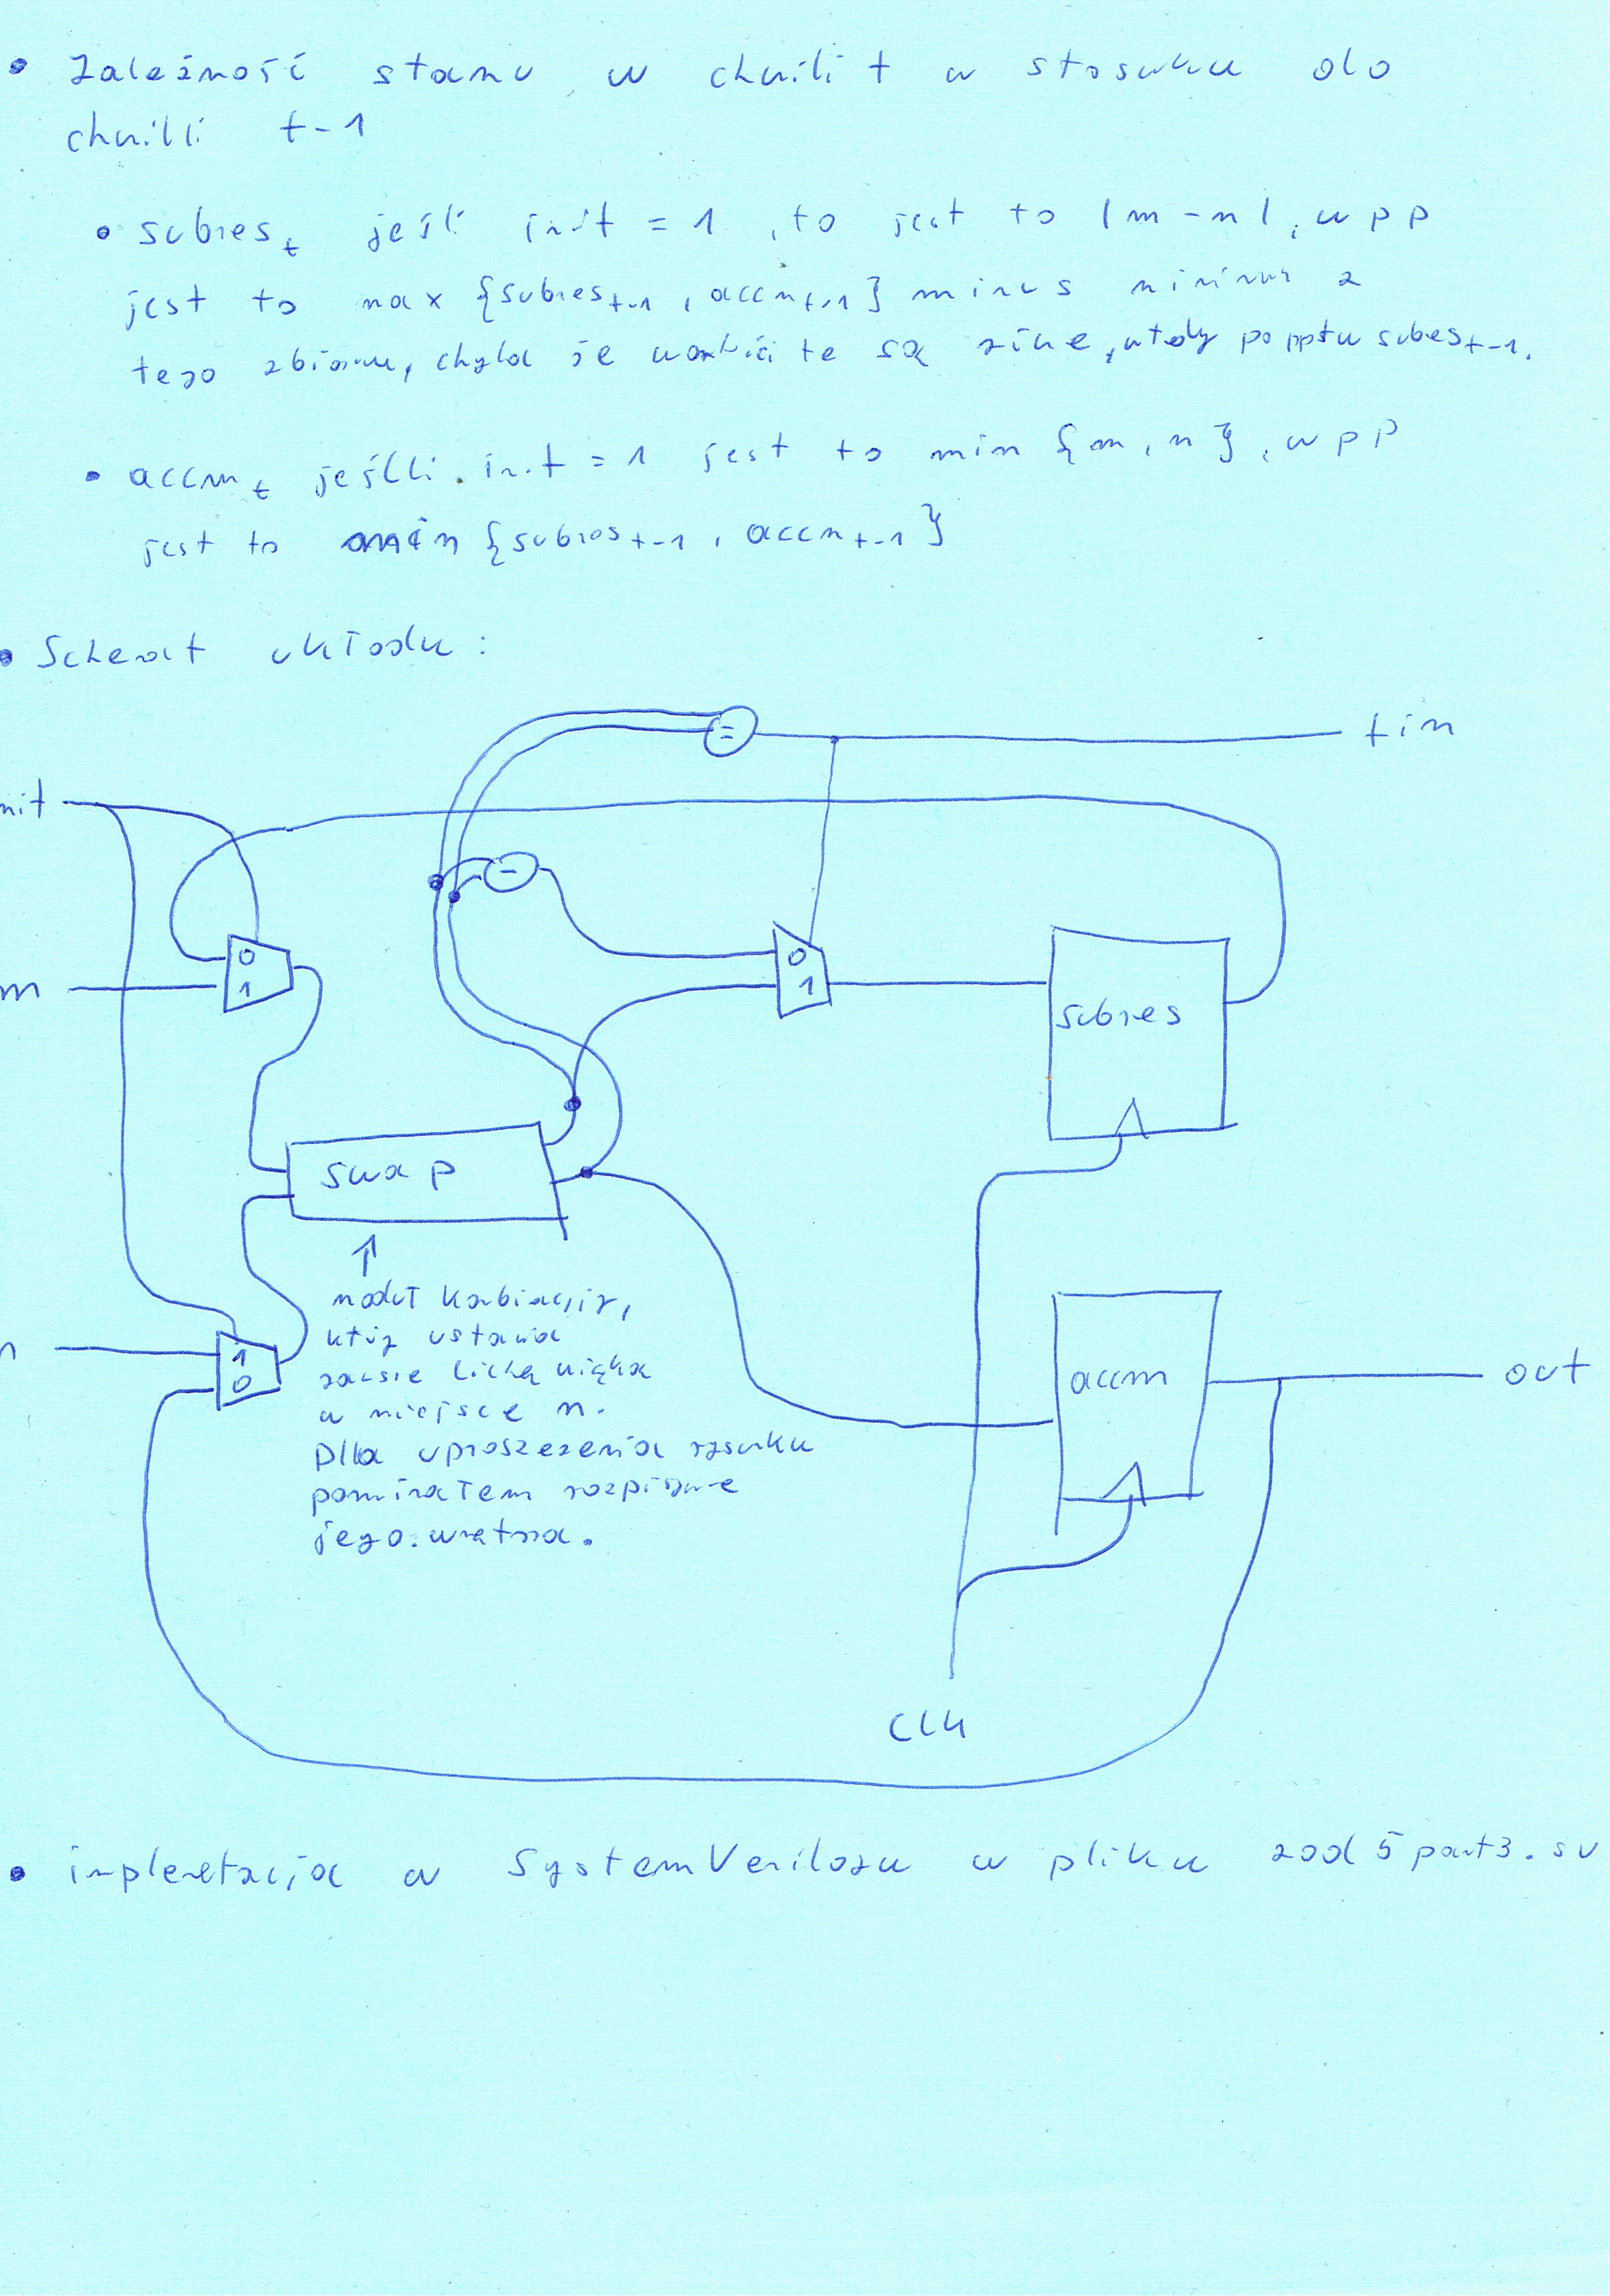 • Zależność stanu w chwili t w stosunku do
chwili t-1
• subres_t jeśli init = 1, to jest to |m - n|, wpp
jest to max {subres_t-1, accm_t-1} minus minimum z
tego zbioru, chyba że wartości te są równe, wtedy po prostu subres_t-1.
• accm_t jeśli init = 1 jest to min {m, n}, wpp
jest to min {subres_t-1, accm_t-1}
• Schemat układu:
=
fin
nit
-
0
1
m
0
1
subres
swap
↑
moduł kombinacyjny,
który ustawia
zawsze liczbę większą
w miejsce m.
Dla uproszczenia rysunku
pominąłem rozpisanie
jego wnętrza.
n
1
0
accm
out
clk
• implementacja w SystemVerilogu w pliku zad5part3.sv